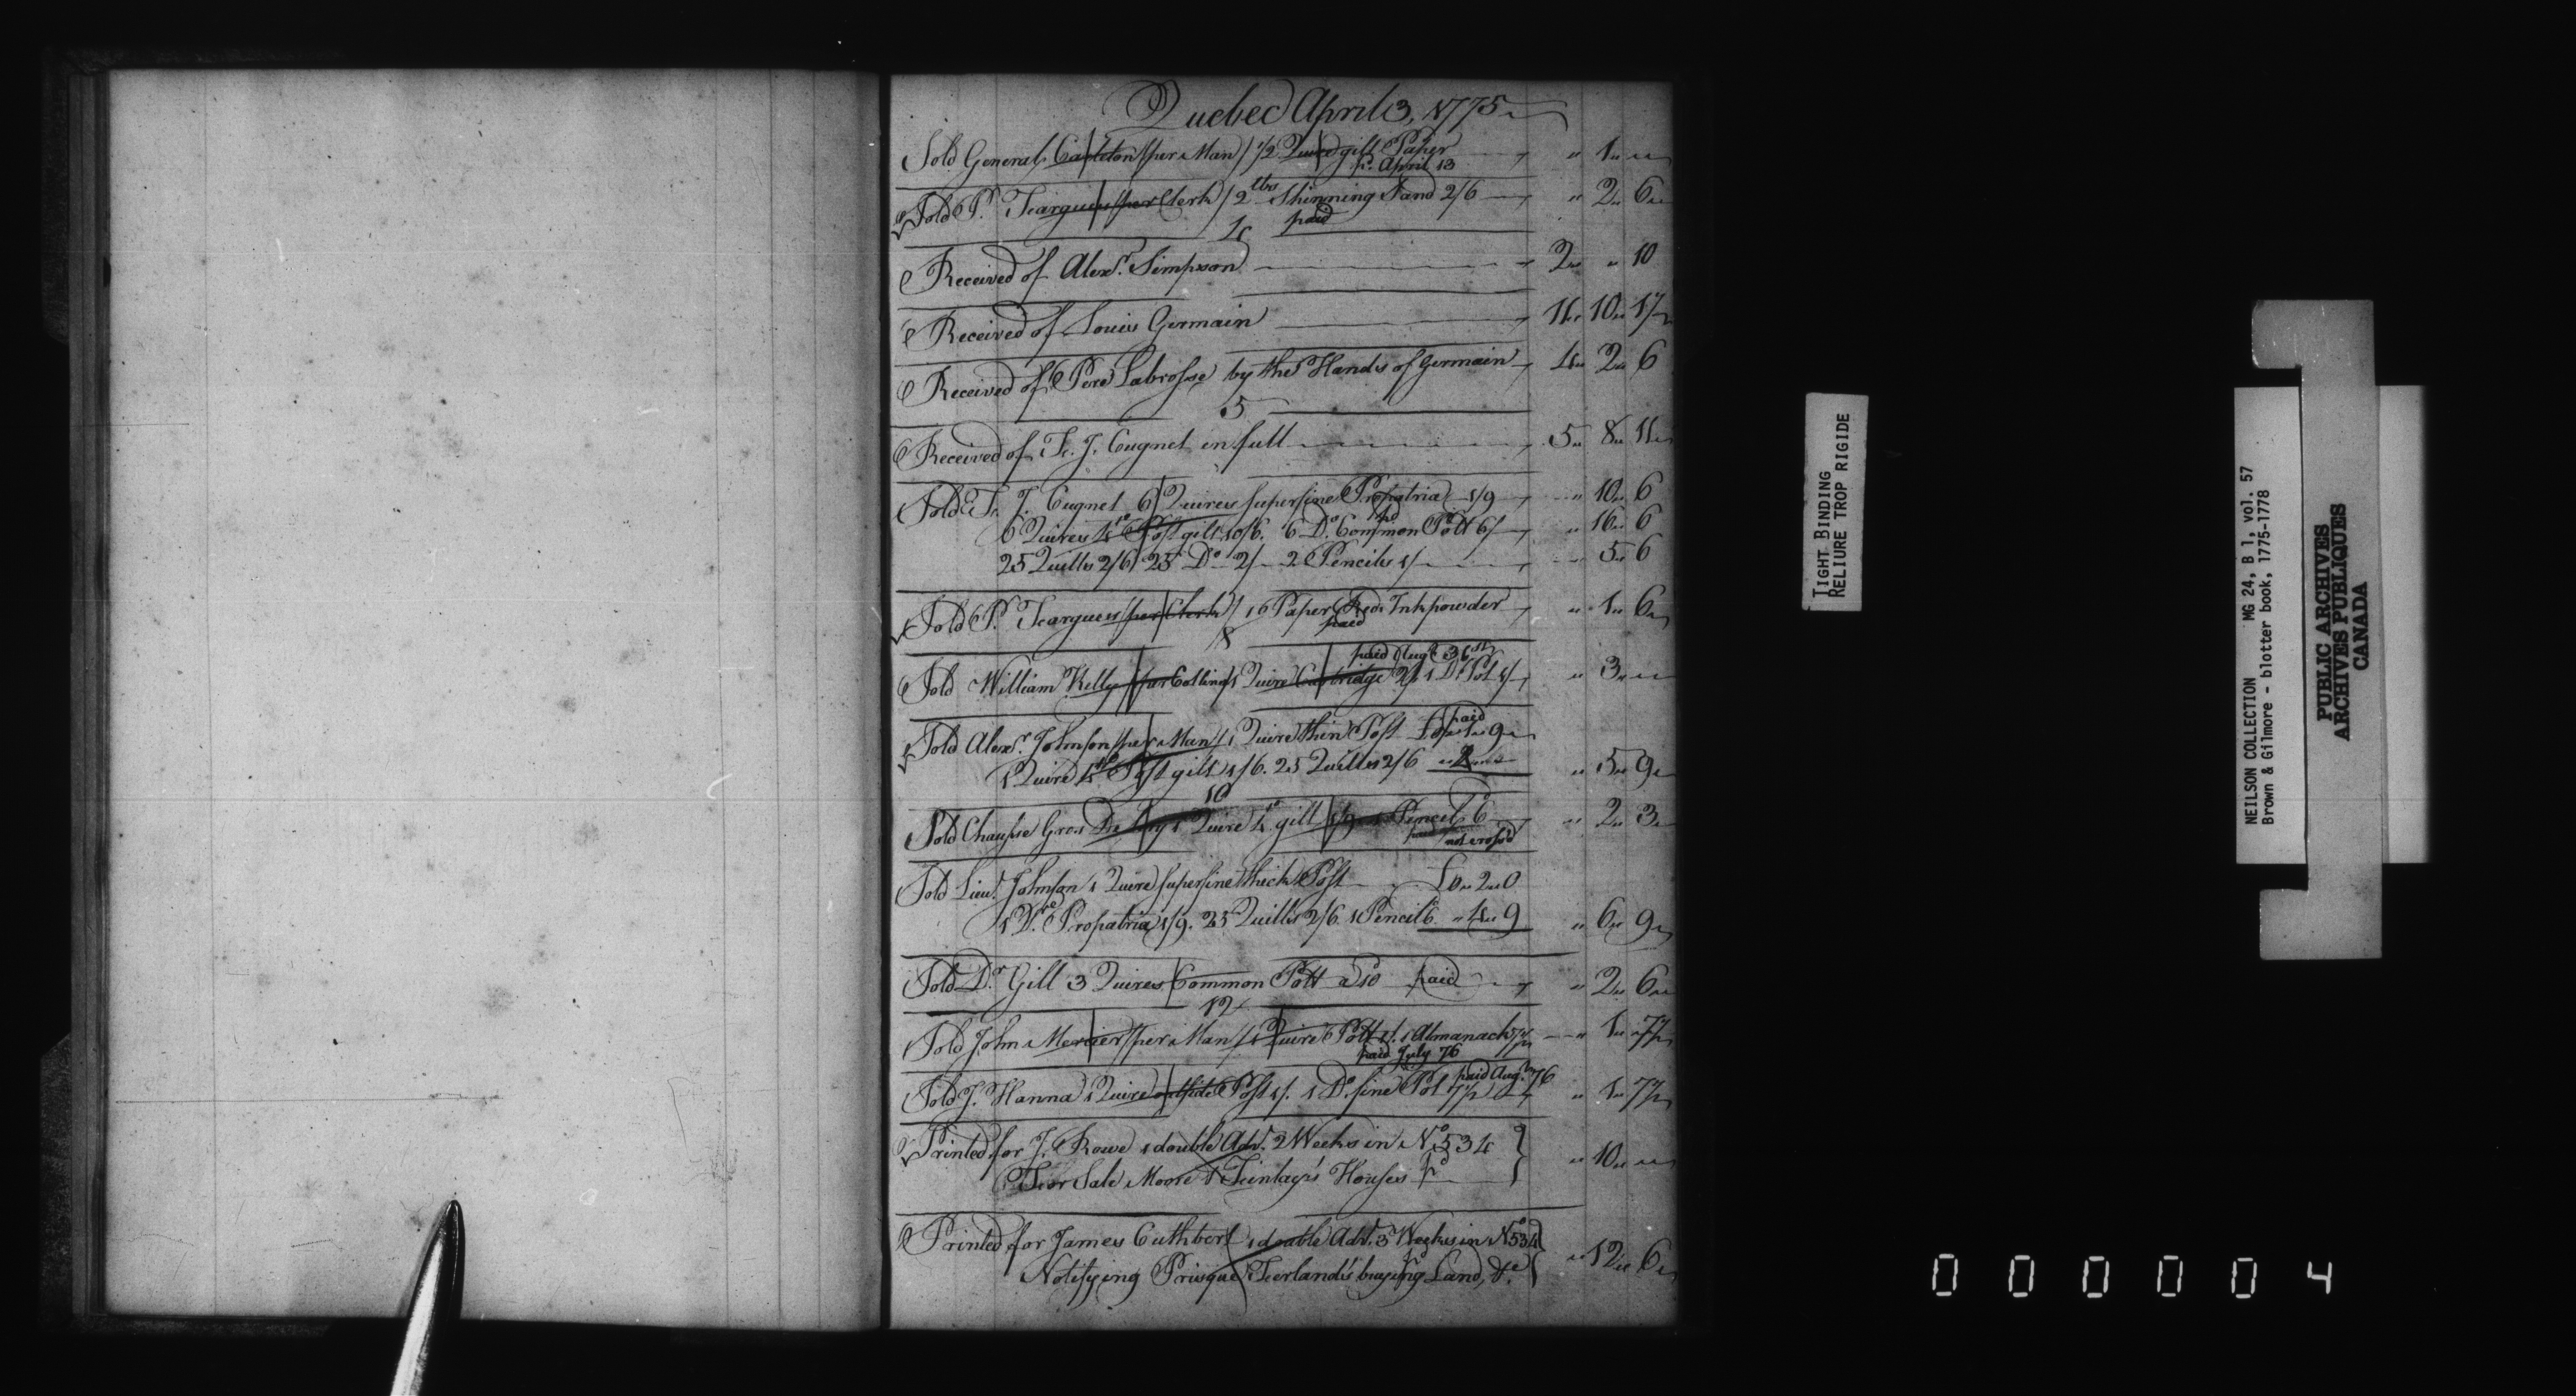 Quebec April 3, 1775
Sold General Carleton (per Man) 1/2 Quire gilt Paper " 1 "
pd. April 13
Sold P. Feargues (per Clerk) 2 lbs Shinning Sand 2/6 " 2 " 6
paid
4
Received of Alexr. Simpson 2 " " 10
Received of Louis Germain 11 " 10 " 1/2
Received of Pere Labrosse by the Hands of Germain 4 " 2 " 6
5
Received of Fr. J. Cugnet in full 5 " 8 " 11
Sold Fr. J. Cugnet 6 Quires superfine Propatria 1/9 " 10 " 6
pd
6 Quires 4to Post gilt 10/6. 6 Do. Common Pott 6/ " 16 " 6
25 Quills 2/6 25 Do 2/ 2 Pencils 1/ " 5 " 6
Sold P. Feargues (per Clerk) 1 Paper Red Inkpowder " 1 " 6
paid
8
paid Augt.
Sold William Kelly (per Collins) 1 Quire Cartridge 2/ 1 Do. Pot 1/ " 3 "
paid
Sold Alexr. Johnson (per Man) 1 Quire thin Post £0 " 1 " 9
1 Quire 4to Post gilt 1/6. 25 Quills 2/6 " 4 " " 5 " 9
10
Sold Chausse Gros De Lery 1 Quire 4to gilt 1/9 1 Pencil 6 " 2 " 3
paid not cross'd
Sold Lieut. Johnson 1 Quire superfine thick Post £0 " 2 " 0
1 Do. Propatria 1/9. 25 Quills 2/6. 1 Pencil 6 " 4 " 9 " 6 " 9
Sold Dr. Gill 3 Quires Common Pott a 10 paid " 2 " 6
12
Sold John Mercier (per Man) 1 Quire Pott 1/. 1 Almanach 7 1/2 " 1 " 7 1/2
paid July 76
Sold J. Hanna 1 Quire outside Post 1/. 1 Do. fine Pot 7 1/2 paid Aug. 76 " 1 " 7 1/2
Printed for J. Rowe 1 double Adv. 2 Weeks in No. 534
For Sale Moore & Finlay's Houses pd " 10 "
Printed for James Cuthbert 1 double Adv. 3 Weeks in No 534
Notifying Prisque Ferland's buying Land, &c. " 12 " 6
TIGHT BINDING
RELIURE TROP RIGIDE
NEILSON COLLECTION MG 24, B 1, vol. 57
Brown & Gilmore - blotter book, 1775-1778
PUBLIC ARCHIVES
ARCHIVES PUBLIQUES
CANADA
000004